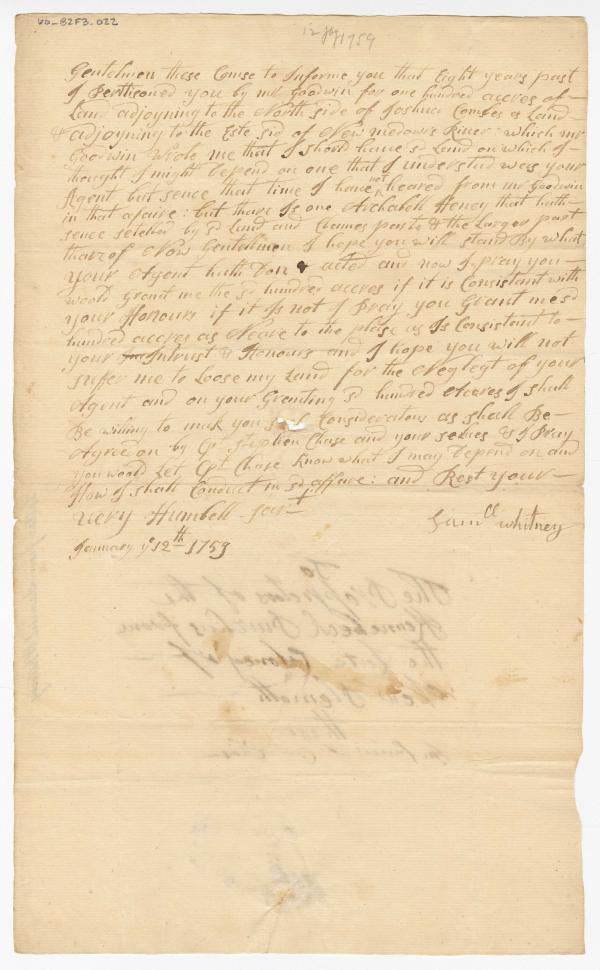 60-82F3.022
12 Jay 1759
Gentelmen these Comse to Informe you that Eight years past
I Perticoned you by mr Goodwin for one hundred accres of
Land adjoyning to the North side of Joshua Combes is Land
& adjoyning to the Este sid of New medows River: which mr
Goodwin wrote me that I should have sd Land on which I
thought I might Depend on one that I understud was your
Agent but sence that time I have not heared from mr Goodwin
in that afaire: but thare Is one Archabell Heney that hath
sence setelled by sd Land and Clames parte & the Larger part
thare of Now Gentellmen I hope you will stand By what
your Agent hath Don & acted and now I pray you
woold grant me the sd hundred accres if it is Consistant with
your Honours if it Is not I Pray you Grant me sd
hundred accres as Neare to the plase as Is Consistant to
your Intrust & Honours and I hope you will not
sufer me to Loose my Land for the Neglegt of your
Agent and on your Granting sd hundred Accres I shall
Be willing to mack you such Consideratons as shall Be
Agree on by Cpt Stephen Chase and your selves & I Pray
you woold Let Cpt Chase know what I may Depend on and
How I shall Conduct in sd affare: and Rest your
very Humbell sarvt
Samll Whitney
January ye 12th 1759
To
The Proprietors of the
Kennebeck Purches from
the Late Colony of
New Plemoth
these